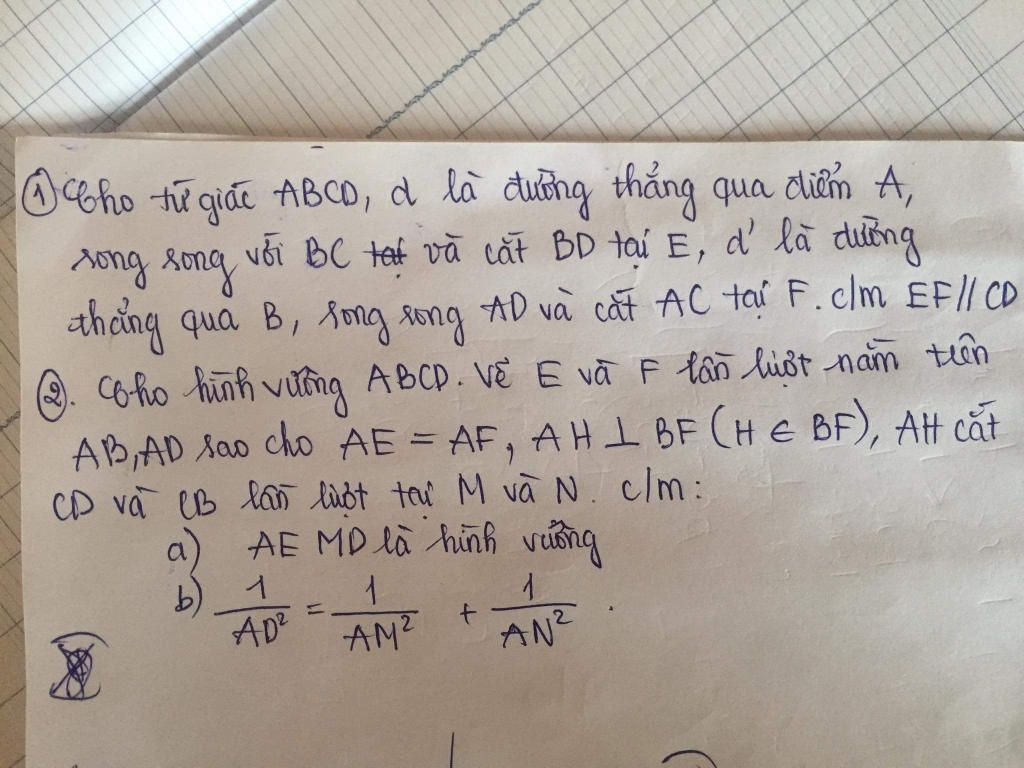 ① Cho tứ giác ABCD, d là đường thẳng qua điểm A,
song song với BC và cắt BD tại E, d' là đường
thẳng qua B, song song AD và cắt AC tại F. c/m EF // CD
②. Cho hình vuông ABCD. Vẽ E và F lần lượt nằm trên
AB, AD sao cho AE = AF, AH ⊥ BF (H ∈ BF), AH cắt
CD và CB lần lượt tại M và N. c/m:
a) AEMD là hình vuông
b) 1/AD² = 1/AM² + 1/AN².